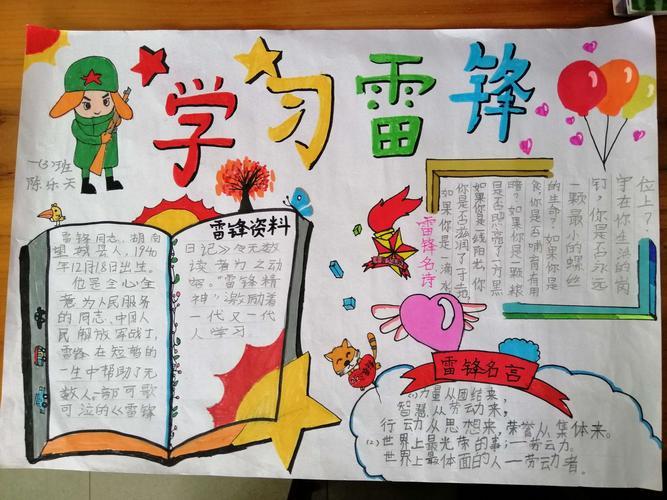 学习雷锋
一(3)班
陈乐天
雷锋同志，湖南
望城县人，1940
年12月18日出生。
他是全心全
意为人民服务
的同志、中国人
民解放军战士，
雷锋在短暂的
一生中帮助了无
数人，部可歌
可泣的《雷锋
雷锋资料
日记》令无数
读者为之动
容。“雷锋精
神”激励着
一代又一代
人学习。
雷锋名诗
如果你是一滴水
你是否滋润了一寸土
如果你是一线阳光，你
是否照亮了一方黑
暗？如果你是一颗粮
食，你是否哺育有用
的生命？如果你是
一颗最小的螺丝
钉，你是否永远
守在你生活的岗
位上？
雷锋名言
(1)力量从团结来，
智慧从劳动来，
行动从思想来，荣誉从集体来。
(2)世界上最光荣的事；一劳动。
世界上最体面的人一劳动者。